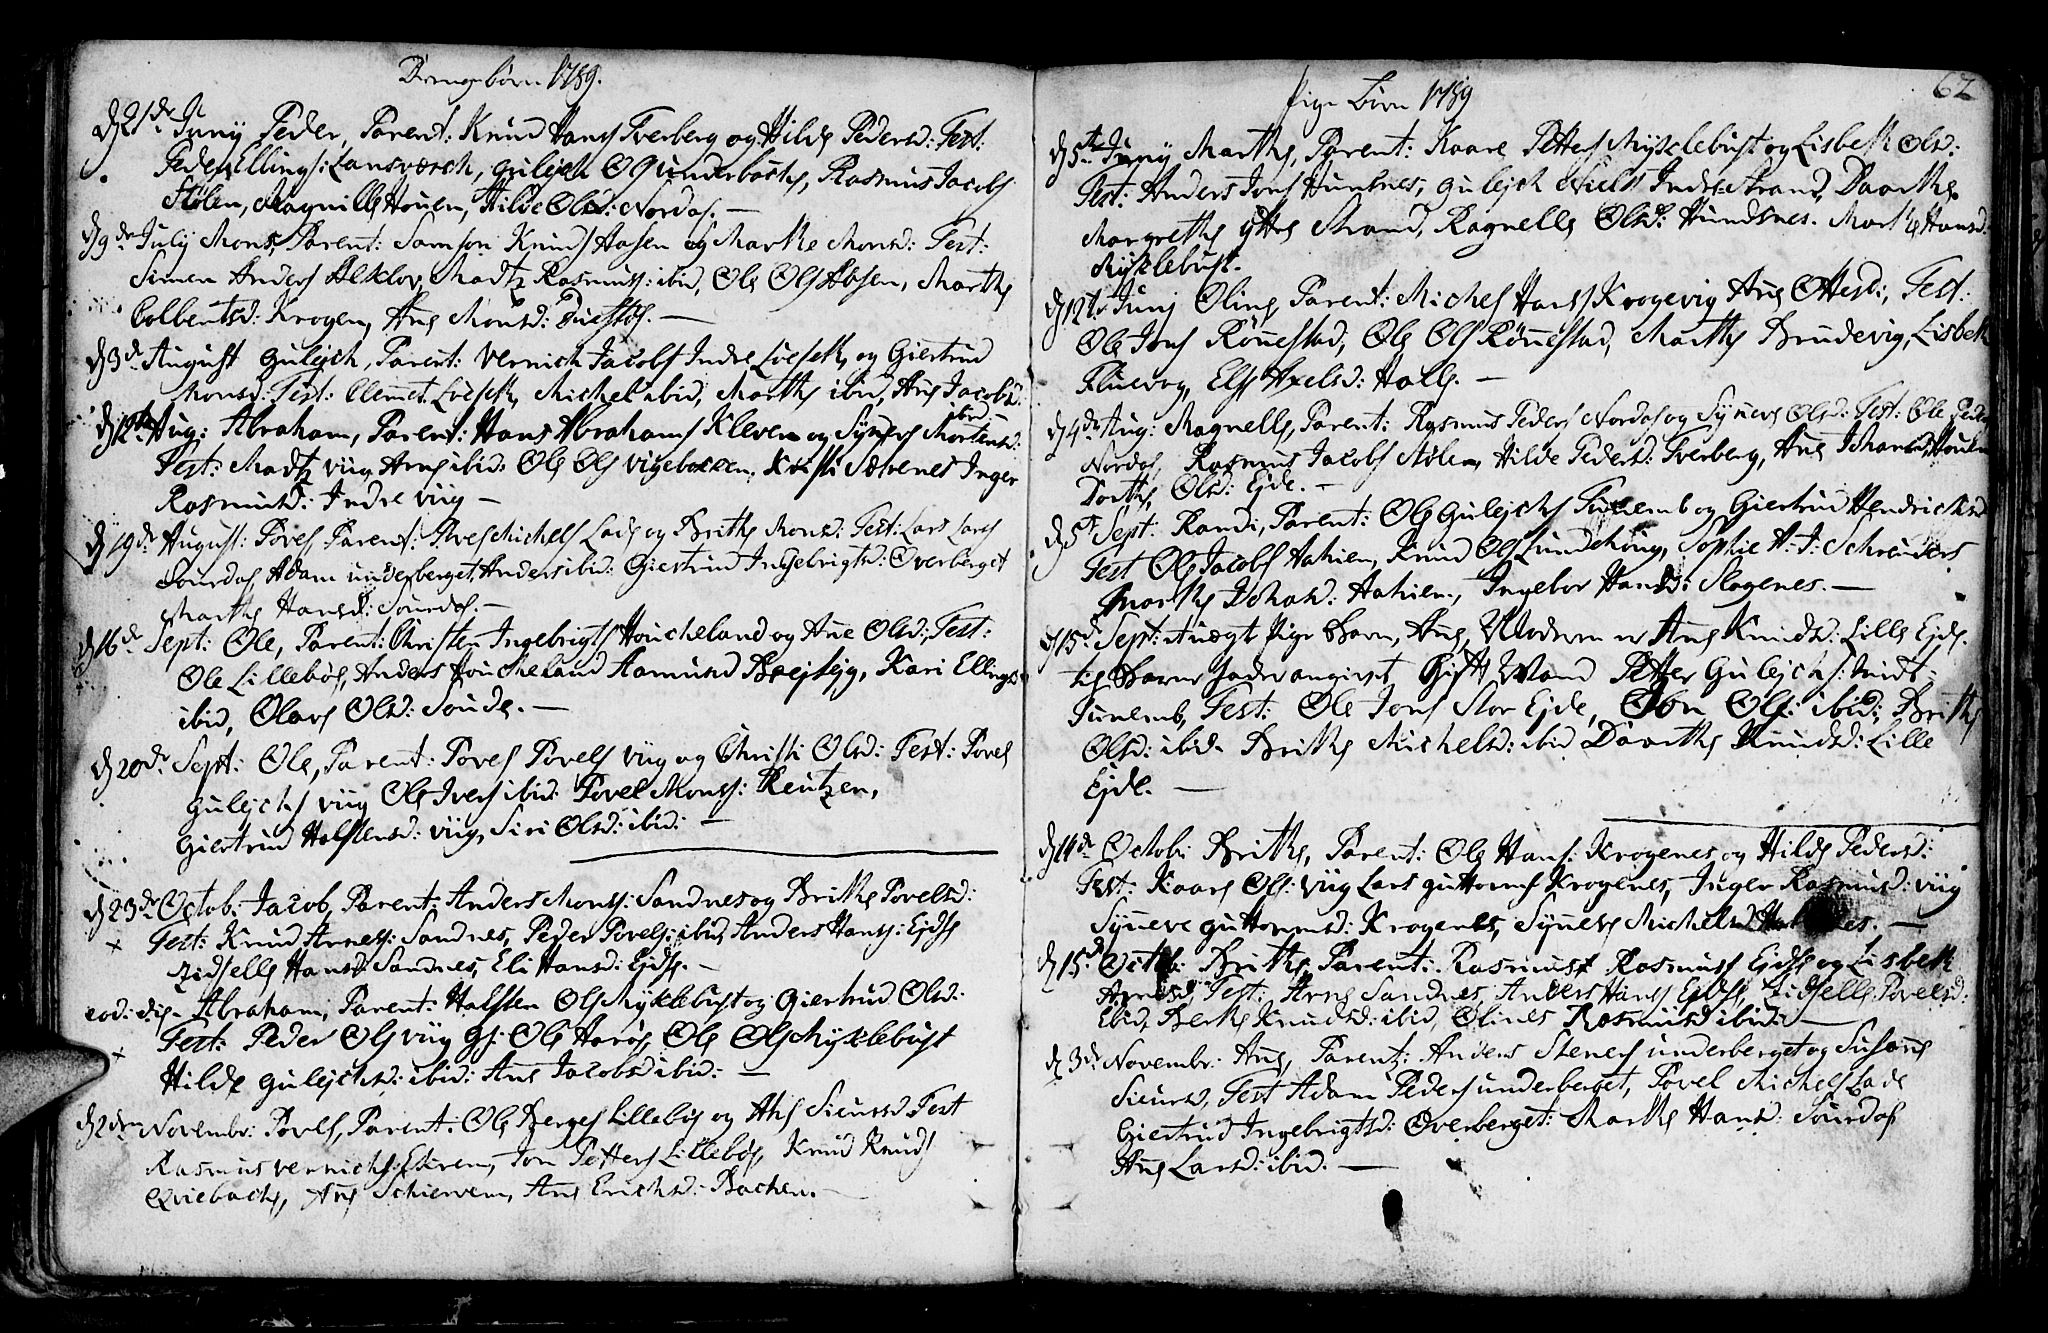 Drengebørn 1789.
d 21de Juny Peder, Parent: Knud Hans Tverberg og Hilde Pedersd: Test:
Peder Ellings: Langværch, Gulejch Ols underbachs, Rasmus Jacobs
Stølen, Magnille Houen, Hilde Olsd: Nordas. —
d 9de July Mons, Parent: Samson Knuds Aasen og Marthe Monsd: Test:
Simen Anders Alklov, Madtz Rasmuss: ibid, Ole Ols Aasen, Marthe
Colbentsd: Krogen, Ane Monsd:
d 3de August Gulejch, Parent: Vernich Jacobs Indre Løeseth, og Giertrud
Monsd: Test: Clemmet Løeseth, Michel ibid, Marthe ibid, Ane Jacobsd:
ibid: —
d 12te Aug: Abraham, Parent: Hans Abrahams Kleven og Synneve Mortensd:
Test: Madtz Viig, Arne ibid: Ole Ols Vigebachen, Kirsti Sævenes Inger
Rasmusd: Indre Viig —
d 19de August: Povel, Parent: Povel Michels Lade og Brithe Monsd: Test: Lars Lars
Sourdal, Adam underberget, Anders ibid: Giertrud Ingebrigtsd: Overberget
Marthe Hansd: Sourdal. —
d 16de Sept: Ole, Parent: Christen Ingebrigts Houcheland og Ane Olsd: Test:
Ole Lillebøe, Anders Houcheland Aamund Brejtejg, Kari Ellings
ibid, Olave Olsd: Soude. —
d 20de Sept: Ole, Parent: Povel Povels Viig og Christi Olsd: Test: Povel
Gulejchs Viig Ole Ivers ibid: Povel Monss: Reutzen,
Giertrud Halstensd: Viig, Siri Olsd: ibid: —
d 23de Octob: Jacob, Parent: Anders Monss: Sandnes og Brithe Povelsd:
Test: Knud Arness: Sandnes, Peder Povels: ibid, Anders Hanss: Ejdse
Zidselle Hansd Sandnes, Eli Hansd: Ejdse. —
eod: die – Abraham, Parent: Halsten Ols Myklebust og Giertrud Olsd:
Test: Peder Ols Viig Gj: Ole Harøe, Ole Ols Myklebust
Hilde Gulejchsd: ibid: Ane Jacobsd ibid: —
d 2den Novembr: Povel, Parent: Ole Berges Lillebøe og Ane Siversd Test
Rasmus Vernichs: Ekrem, Jon Petters Lillebøe, Knud Knuds
Qviebachs, Ane Schierven, Ane Erichsd: Bachen. —
62
Pige Børn 1789
d 5te Juny Marthe, Parent: Kaare Petters Myklebust og Lisbeth Olsd:
Test: Anders Jons Hundsnes, Gulejch Niels Indrestrand, Daarthe
Margrethe Ytre Strand, Ragnelle Olsd: Hundsnes. Marthe Hansd:
Myklebust.
d 12te Junj Oline, Parent: Michel Hans Krogevig Ane Ottesd:, Test:
Ole Jons Rønnestad, Ole Ols Rønnestad, Marthe Brudevig, Lisbeth
Fluevog, Else Axelsd: Halle. —
d 4de Aug: Magnelle, Parent: Rasmus Peders Nordas og Synneve Olsd: Test: Ole Peders
Nordas, Rasmus Jacobs Stølen, Hilde Pedersd: Tverberg, Ane Johansd, Houen
Dorthe, Olsd: Ejde. —
d 5te Sept: Randi, Parent: Ole Gulejchs Tunemb og Giertrud Hendrichsd
Test Ole Jacobs Aahien, Knud Ols Lundehoug, Sophie H: J: Schreuders
Marthe Johansd: Aahien, Ingebor Hansd: Slogenes. —
d 15de Sept: Auægt Pige Barn, Ane, Moderen er Ane Knudsd: Lille Ejde.
til Barne Fader angivet Gift Mand Petter Gulejchs: Midt–
Tunemb, Test: Ole Jons Stor Ejde, Jon Ols: ibid, Brithe
Olsd: ibid. Brithe Michelsd: ibid Daarthe Knudsd: Lille
Ejde. —
d 14de Octob: Brithe, Parent: Ole Hans: Krogenes og Hilde Pedersd:
Test: Kaare Ols: Viig Lars Guttorms Krogenes, Inger Rasmusd: Viig
Synneve Guttormsd: Krogenes, Synneve Michelsd —
d 15de Octob: Brithe, Parent: Rasmus Rasmuss Ejdse og Lisbeth
Arnesd, Test: Arne Sandnes, Anders Hans Ejdse, Zidselle Povelsd:
Ebid, Berthe Knudsd: ibid, Olines Rasmusd ibid: —
d 3de Novembr: Ane, Parent: Anders Steners underberget og Susane
Siversd, Test Adam Peders underberget, Povel Michels Lade
Giertrud Ingebrigtsd: Overberget: Marthe Hansd: Sourdal
Ane Larsd: ibid. —